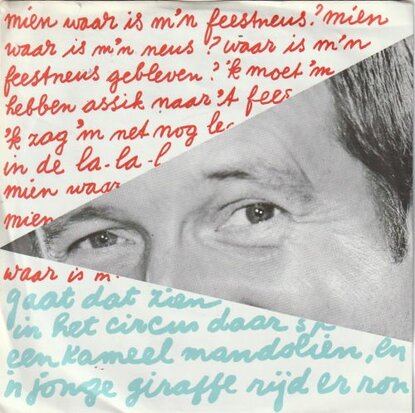 mien waar is m'n feestneus? mien
waar is m'n neus? waar is m'n
feestneus gebleven? 'k moet 'm
hebben assik naar 't fees
'k zag 'm net nog
in de la-la-l
mien waar
mien
waar is m'
gaat dat zien
in het circus daar
een kameel mandolien, en
'n jonge giraffe rijd er ron